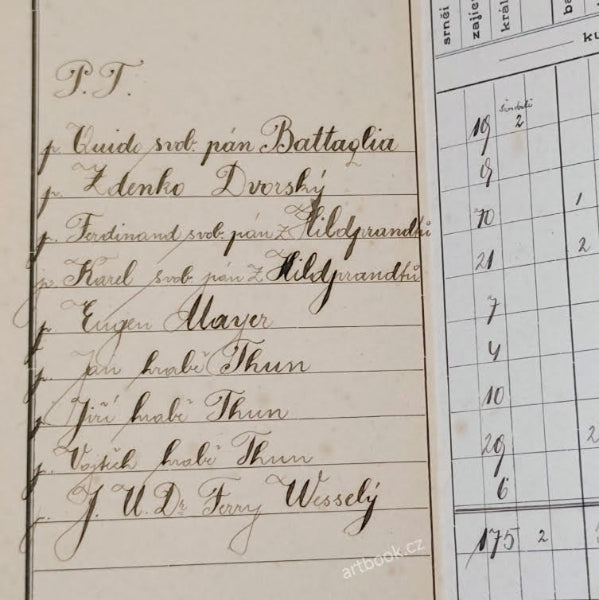 P. T.
p. Quido svob. pán Battaglia
p. Zdenko Dvorský
p. Ferdinand svob. pán z Hildprandtů
p. Karel svob. pán z Hildprandtů
p. Eugen Mayer
p. Jan hrabě Thun
p. Jiří hrabě Thun
p. Vojtěch hrabě Thun
p. J. U. Dr. Ferry Wesselý
srnčí
zajíc
král
ba
ku
19 2
9
70 1
21 2
7
4
10
29 2
6
175 2
artbook.cz